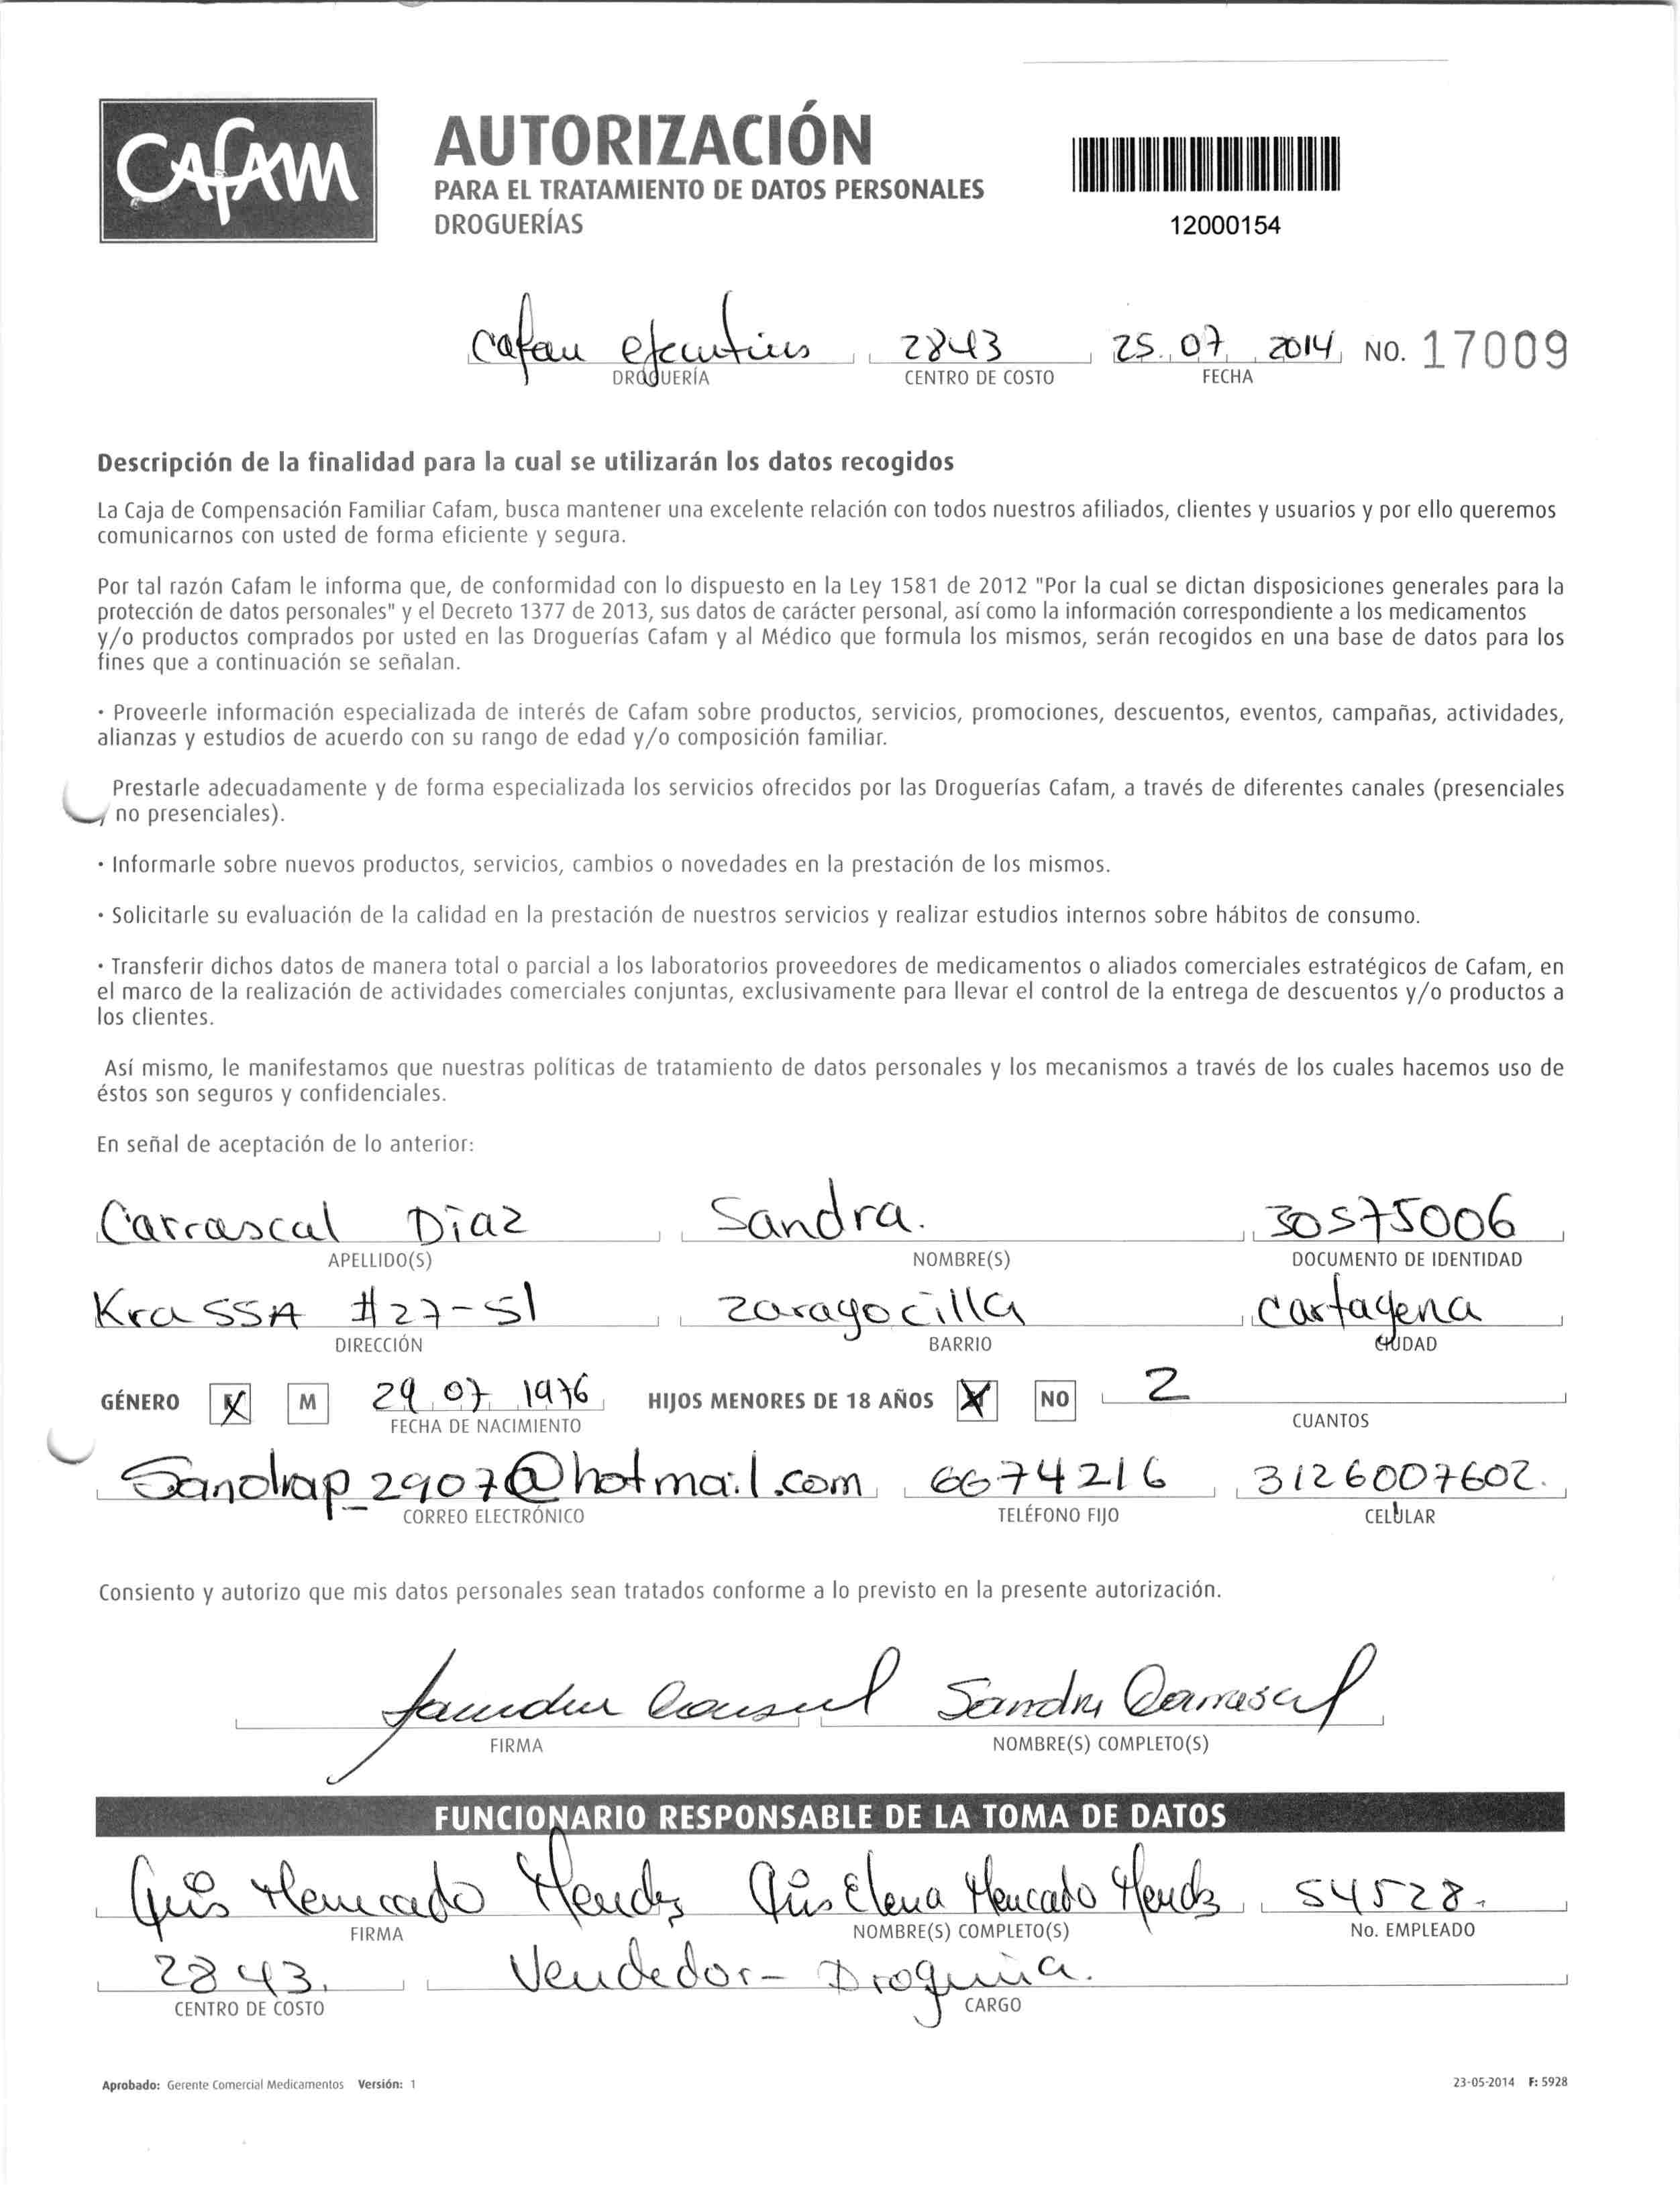 CAFAM
AUTORIZACIÓN
PARA EL TRATAMIENTO DE DATOS PERSONALES
DROGUERÍAS
12000154
Cafam ejecutivos 2843 25 07 2014 NO. 17009
DROGUERÍA CENTRO DE COSTO FECHA
Descripción de la finalidad para la cual se utilizarán los datos recogidos
La Caja de Compensación Familiar Cafam, busca mantener una excelente relación con todos nuestros afiliados, clientes y usuarios y por ello queremos
comunicarnos con usted de forma eficiente y segura.
Por tal razón Cafam le informa que, de conformidad con lo dispuesto en la Ley 1581 de 2012 "Por la cual se dictan disposiciones generales para la
protección de datos personales" y el Decreto 1377 de 2013, sus datos de carácter personal, así como la información correspondiente a los medicamentos
y/o productos comprados por usted en las Droguerías Cafam y al Médico que formula los mismos, serán recogidos en una base de datos para los
fines que a continuación se señalan.
· Proveerle información especializada de interés de Cafam sobre productos, servicios, promociones, descuentos, eventos, campañas, actividades,
alianzas y estudios de acuerdo con su rango de edad y/o composición familiar.
Prestarle adecuadamente y de forma especializada los servicios ofrecidos por las Droguerías Cafam, a través de diferentes canales (presenciales
no presenciales).
· Informarle sobre nuevos productos, servicios, cambios o novedades en la prestación de los mismos.
· Solicitarle su evaluación de la calidad en la prestación de nuestros servicios y realizar estudios internos sobre hábitos de consumo.
· Transferir dichos datos de manera total o parcial a los laboratorios proveedores de medicamentos o aliados comerciales estratégicos de Cafam, en
el marco de la realización de actividades comerciales conjuntas, exclusivamente para llevar el control de la entrega de descuentos y/o productos a
los clientes.
Así mismo, le manifestamos que nuestras políticas de tratamiento de datos personales y los mecanismos a través de los cuales hacemos uso de
éstos son seguros y confidenciales.
En señal de aceptación de lo anterior:
Carrascal Diaz Sandra. 30575006
APELLIDO(S) NOMBRE(S) DOCUMENTO DE IDENTIDAD
Kra 55A #27-51 Zaragocilla Cartagena
DIRECCIÓN BARRIO CIUDAD
GÉNERO F M 29 07 1976 HIJOS MENORES DE 18 AÑOS NO 2
FECHA DE NACIMIENTO CUANTOS
Sandrap_2907@hotmail.com 6674216 3126007602.
CORREO ELECTRÓNICO TELÉFONO FIJO CELULAR
Consiento y autorizo que mis datos personales sean tratados conforme a lo previsto en la presente autorización.
Sandra Carrascal Sandra Carrascal
FIRMA NOMBRE(S) COMPLETO(S)
FUNCIONARIO RESPONSABLE DE LA TOMA DE DATOS
Mercado Mendez Elena Mercado Mendez 54528.
FIRMA NOMBRE(S) COMPLETO(S) No. EMPLEADO
2843. Vendedor- Drogueria.
CENTRO DE COSTO CARGO
Aprobado: Gerente Comercial Medicamentos Versión: 1 23-05-2014 F: 5928